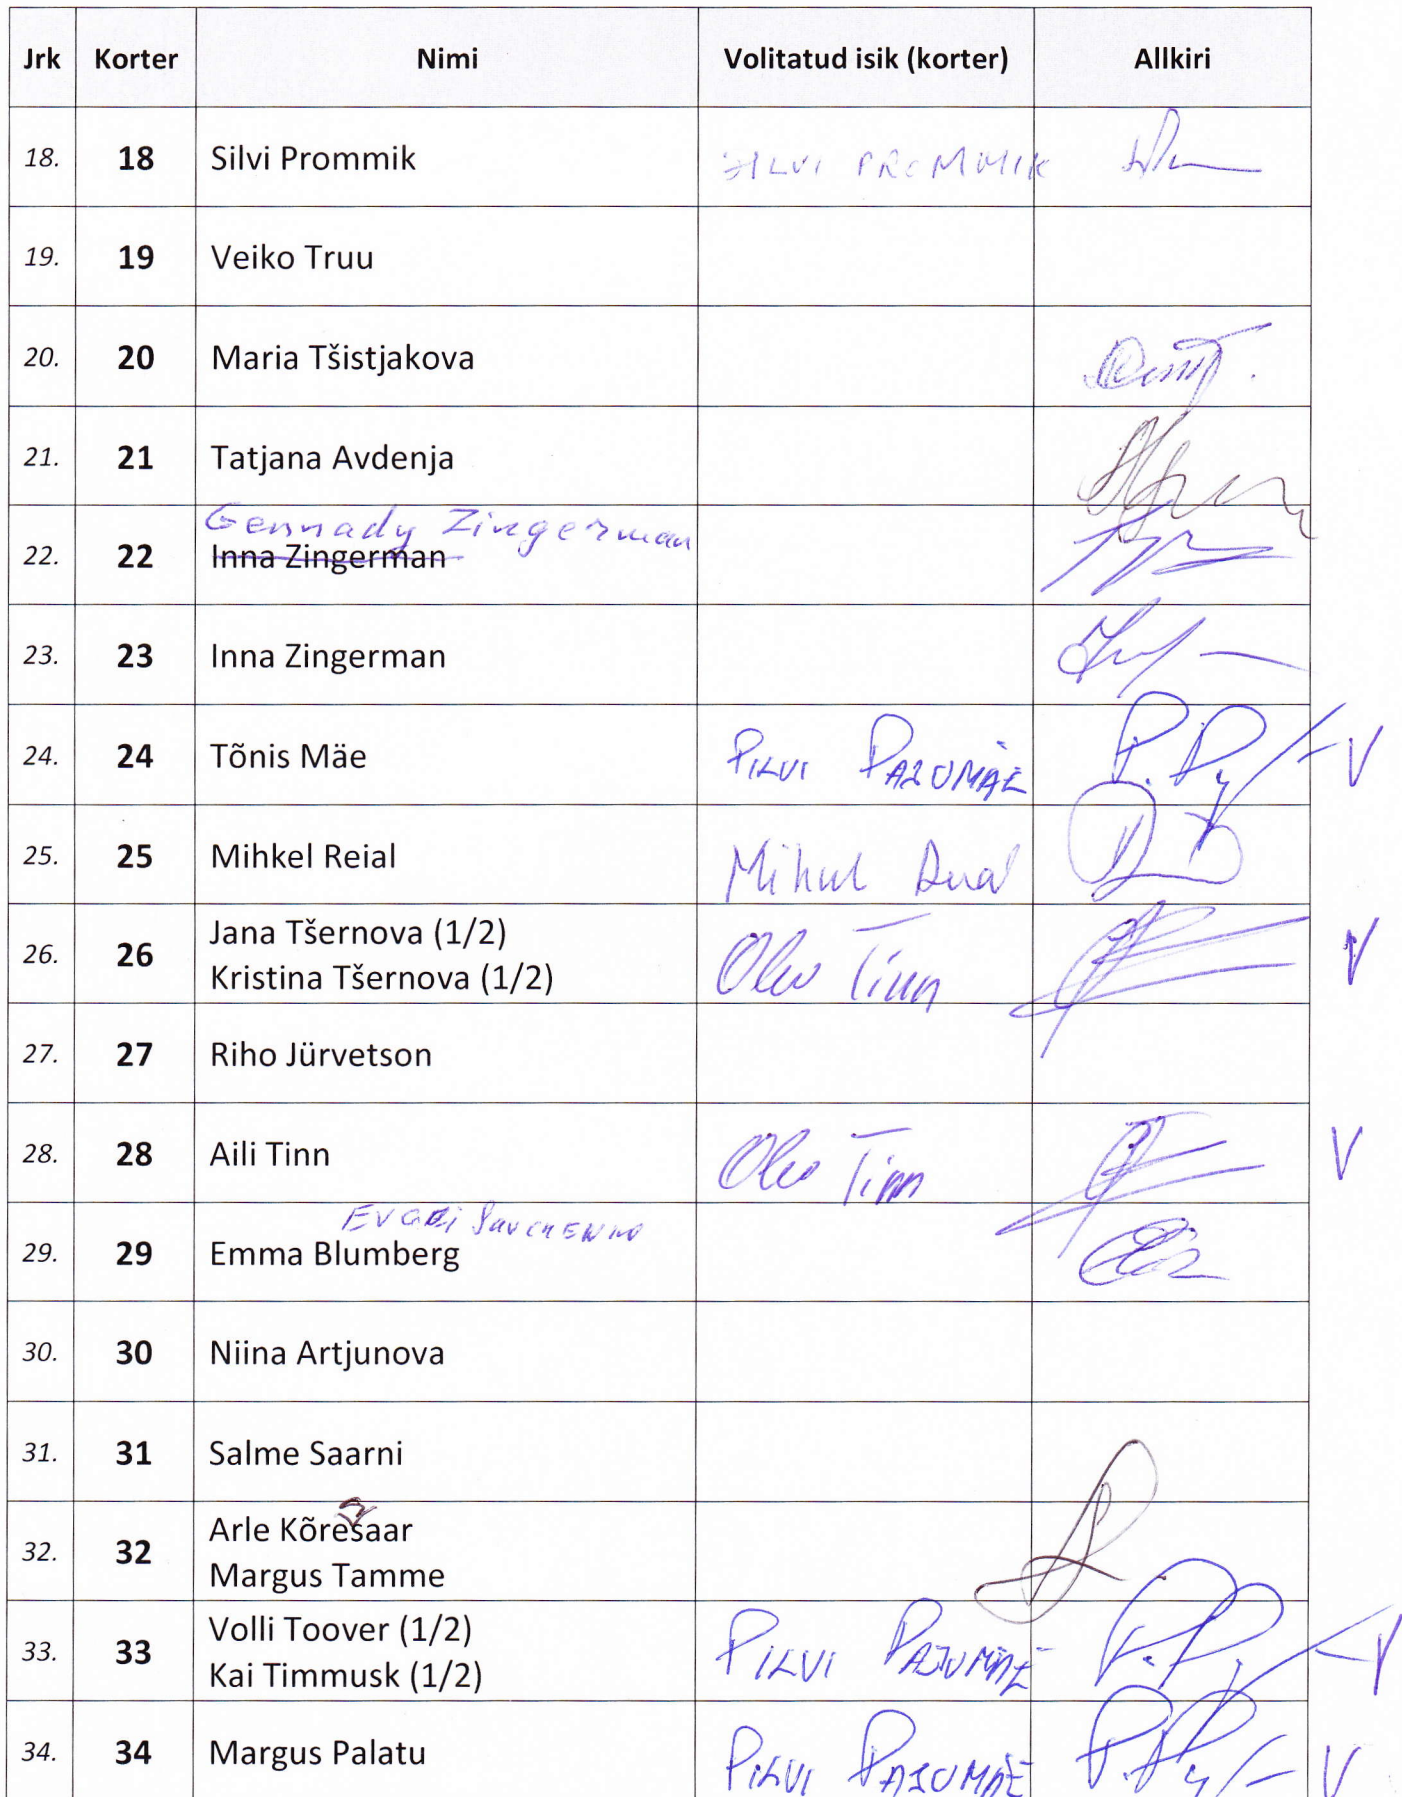 Jrk Korter Nimi Volitatud isik (korter) Allkiri
18. 18 Silvi Prommik SILVI PROMMIK
19. 19 Veiko Truu
20. 20 Maria Tšistjakova
21. 21 Tatjana Avdenja
Gennady Zingerman
22. 22 Inna Zingerman
23. 23 Inna Zingerman
24. 24 Tõnis Mäe PILVI PAJUMÄE V
25. 25 Mihkel Reial
26. 26 Jana Tšernova (1/2) Olev Tinn V
Kristina Tšernova (1/2)
27. 27 Riho Jürvetson
28. 28 Aili Tinn Olev Tinn V
29. 29 Emma Blumberg
30. 30 Niina Artjunova
31. 31 Salme Saarni
32. 32 Arle Kõresaar
Margus Tamme
33. 33 Volli Toover (1/2) PILVI PAJUMÄE V
Kai Timmusk (1/2)
34. 34 Margus Palatu PILVI PAJUMÄE V